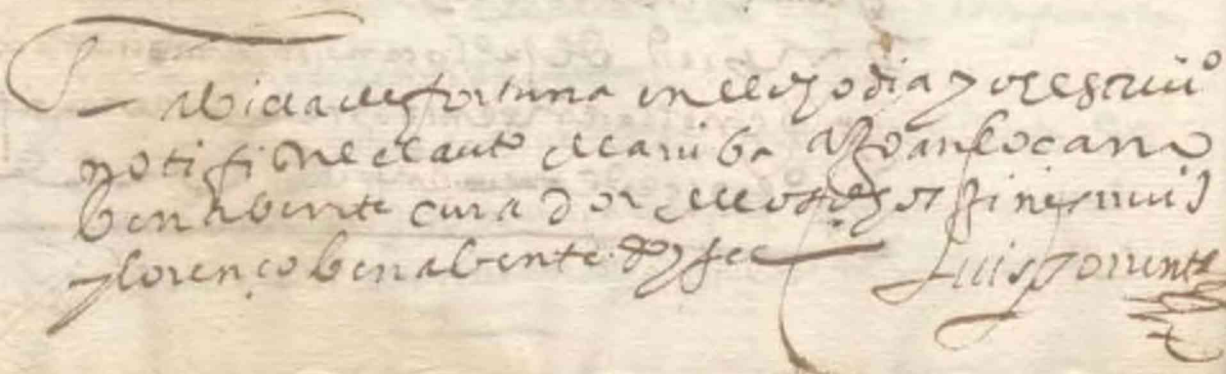 En la billa de fortuna en el dho dia yo el escriuº
notifique el auto de arriba a Juan locano
benabente curador de los dhos gines ruiz
y lorenço benabente doy fee
Luis Torrente